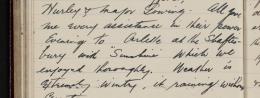 Hurley & Major Fowing. All gave
me every assistance in their power
Evening to Arlette as the Shaftes-
bury with "Sunshine" which we
enjoyed thoroughly. Weather is
extremely wintry, it raining without